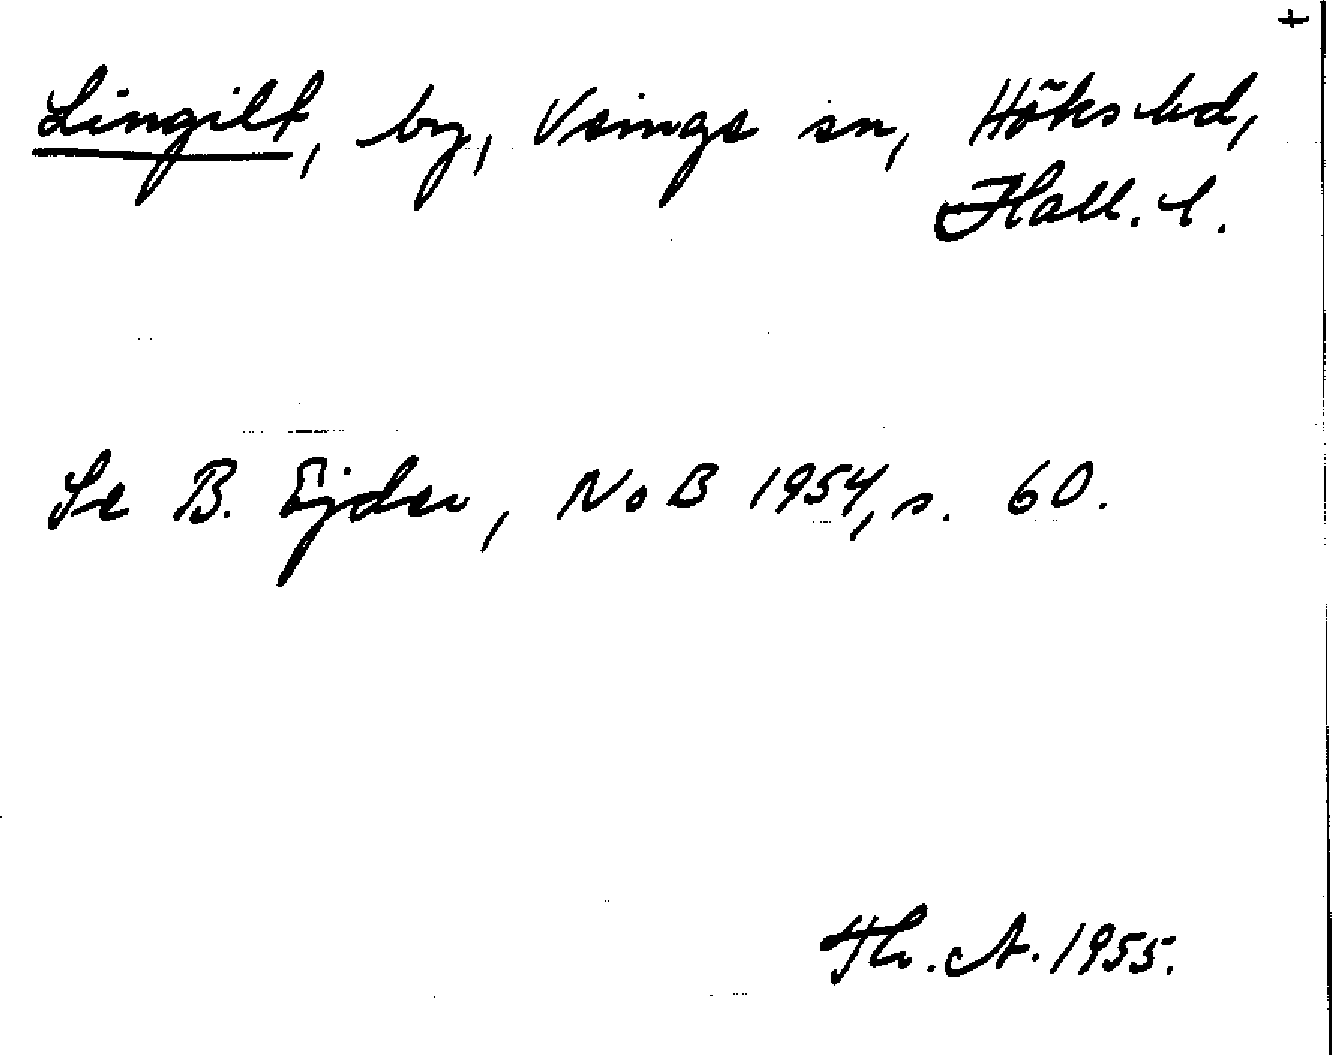 +
Lingilt, by, Veinge sn, Höks hd,
Hall. l.
Se B. Ejder, NoB 1954, s. 60.
Th. A. 1955.